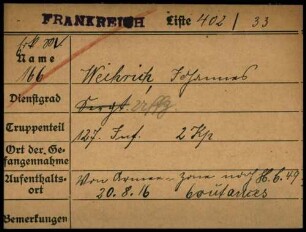 FRANKREICH Liste 402 / 33
Name
166 Weihrich Johannes
Dienstgrad Sergt.
Truppenteil 127. Inf. 2 Kp
Ort der Ge-
fangennahme
Aufenthalts-
ort Von Armee-zone nach H.C. 49
20.8.16 Coutances
Bemerkungen